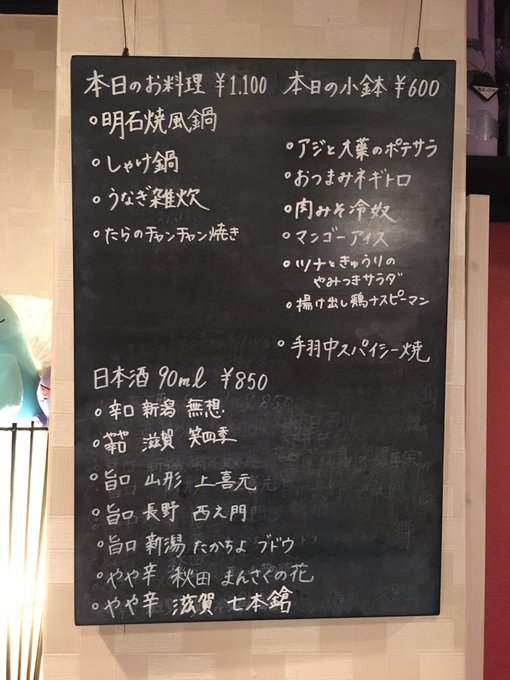 本日のお料理 ¥1.100
○明石焼風鍋
○しゃけ鍋
○うなぎ雑炊
○たらのチャンチャン焼き
本日の小鉢 ¥600
○アジと大葉のポテサラ
○おつまみネギトロ
○肉みそ冷奴
○マンゴーアイス
○ツナときゅうりの
やみつきサラダ
○揚げ出し鶏ナスピーマン
○手羽中スパイシー焼
日本酒 90ml ¥850
○辛口 新潟 無想
滋賀 笑四季
○旨口 山形 上喜元
○旨口 長野 西之門
○旨口 新潟 たかちよ ブドウ
○やや辛 秋田 まんさくの花
○やや辛 滋賀 七本鎗